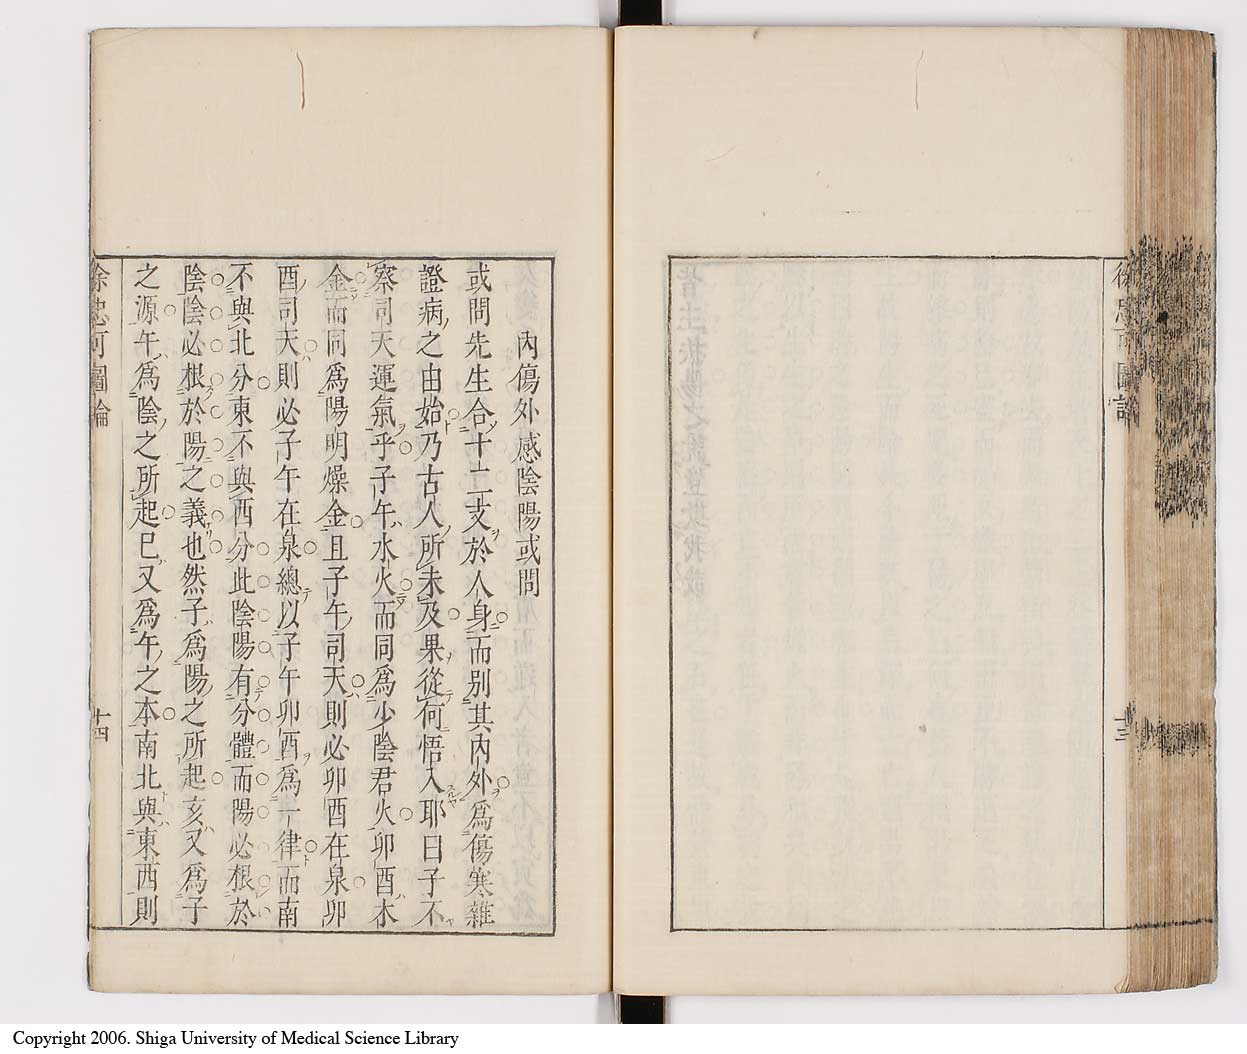 徐忠可圖論
十三
內傷外感陰陽或問
或問先生合十二支於人身而別其內外為傷寒雜
證病之由始乃古人所未及果從何悟入耶曰子不
察司天運氣乎子午水火而同為少陰君火卯酉木
金而同為陽明燥金且子午司天則必卯酉在泉卯
酉司天則必子午在泉總以子午卯酉為一律而南
不與北分東不與西分此陰陽有分體而陽必根於
陰陰必根於陽之義也然子為陽之所起亥又為子
之源午為陰之所起巳又為午之本南北與東西則
徐忠可圖論
十四
Copyright 2006. Shiga University of Medical Science Library